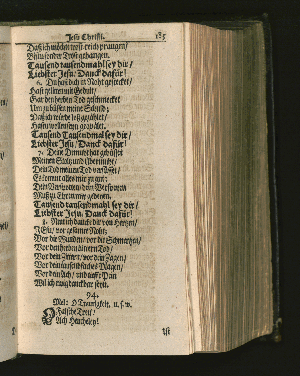 Jesu Christi. 185
Daß ich möcht trost-reich prangen/
Bist du sonder Trost gehangen.
Tausend tausendmahl sey dir/
Liebster Jesu/ Danck dafür!
6. Du hast dich in Noht gestecket/
Hast gelitten mit Gedult/
Gar den herben Tod geschmecket
Um zu büssen meine Schuld;
Daß ich würde loß gezählet/
Hast du wollen seyn gequälet.
Tausend Tausendmal sey dir/
Liebster Jesu/ Danck dafür!
7. Deine Demuht hat gebüsset
Meinen Stoltz und Ubermuht/
Dein Tod meinen Tod versüsset/
Es kommt alles mir zu gut:
Dein Verspotten/ dein Verspeyen
Muß zu Ehren mir gedeyen.
Tausend tausendmahl sey dir/
Liebster Jesu/ Danck dafür!
8. Nun ich dancke dir von Hertzen/
JEsu/ vor gesamte Noht:
Vor die Wunden/ vor die Schmertzen/
Vor den herben bittern Tod/
Vor dein Zittern/ vor dein Zagen/
Vor dein tausendfaches Plagen/
Vor dein Ach/ und tieffe Pein
Wil ich ewig danckbar seyn.
94.
Mel: O Traurigkeit. u. s. w.
Falsche Treu/
Ach Heucheley!
Ist